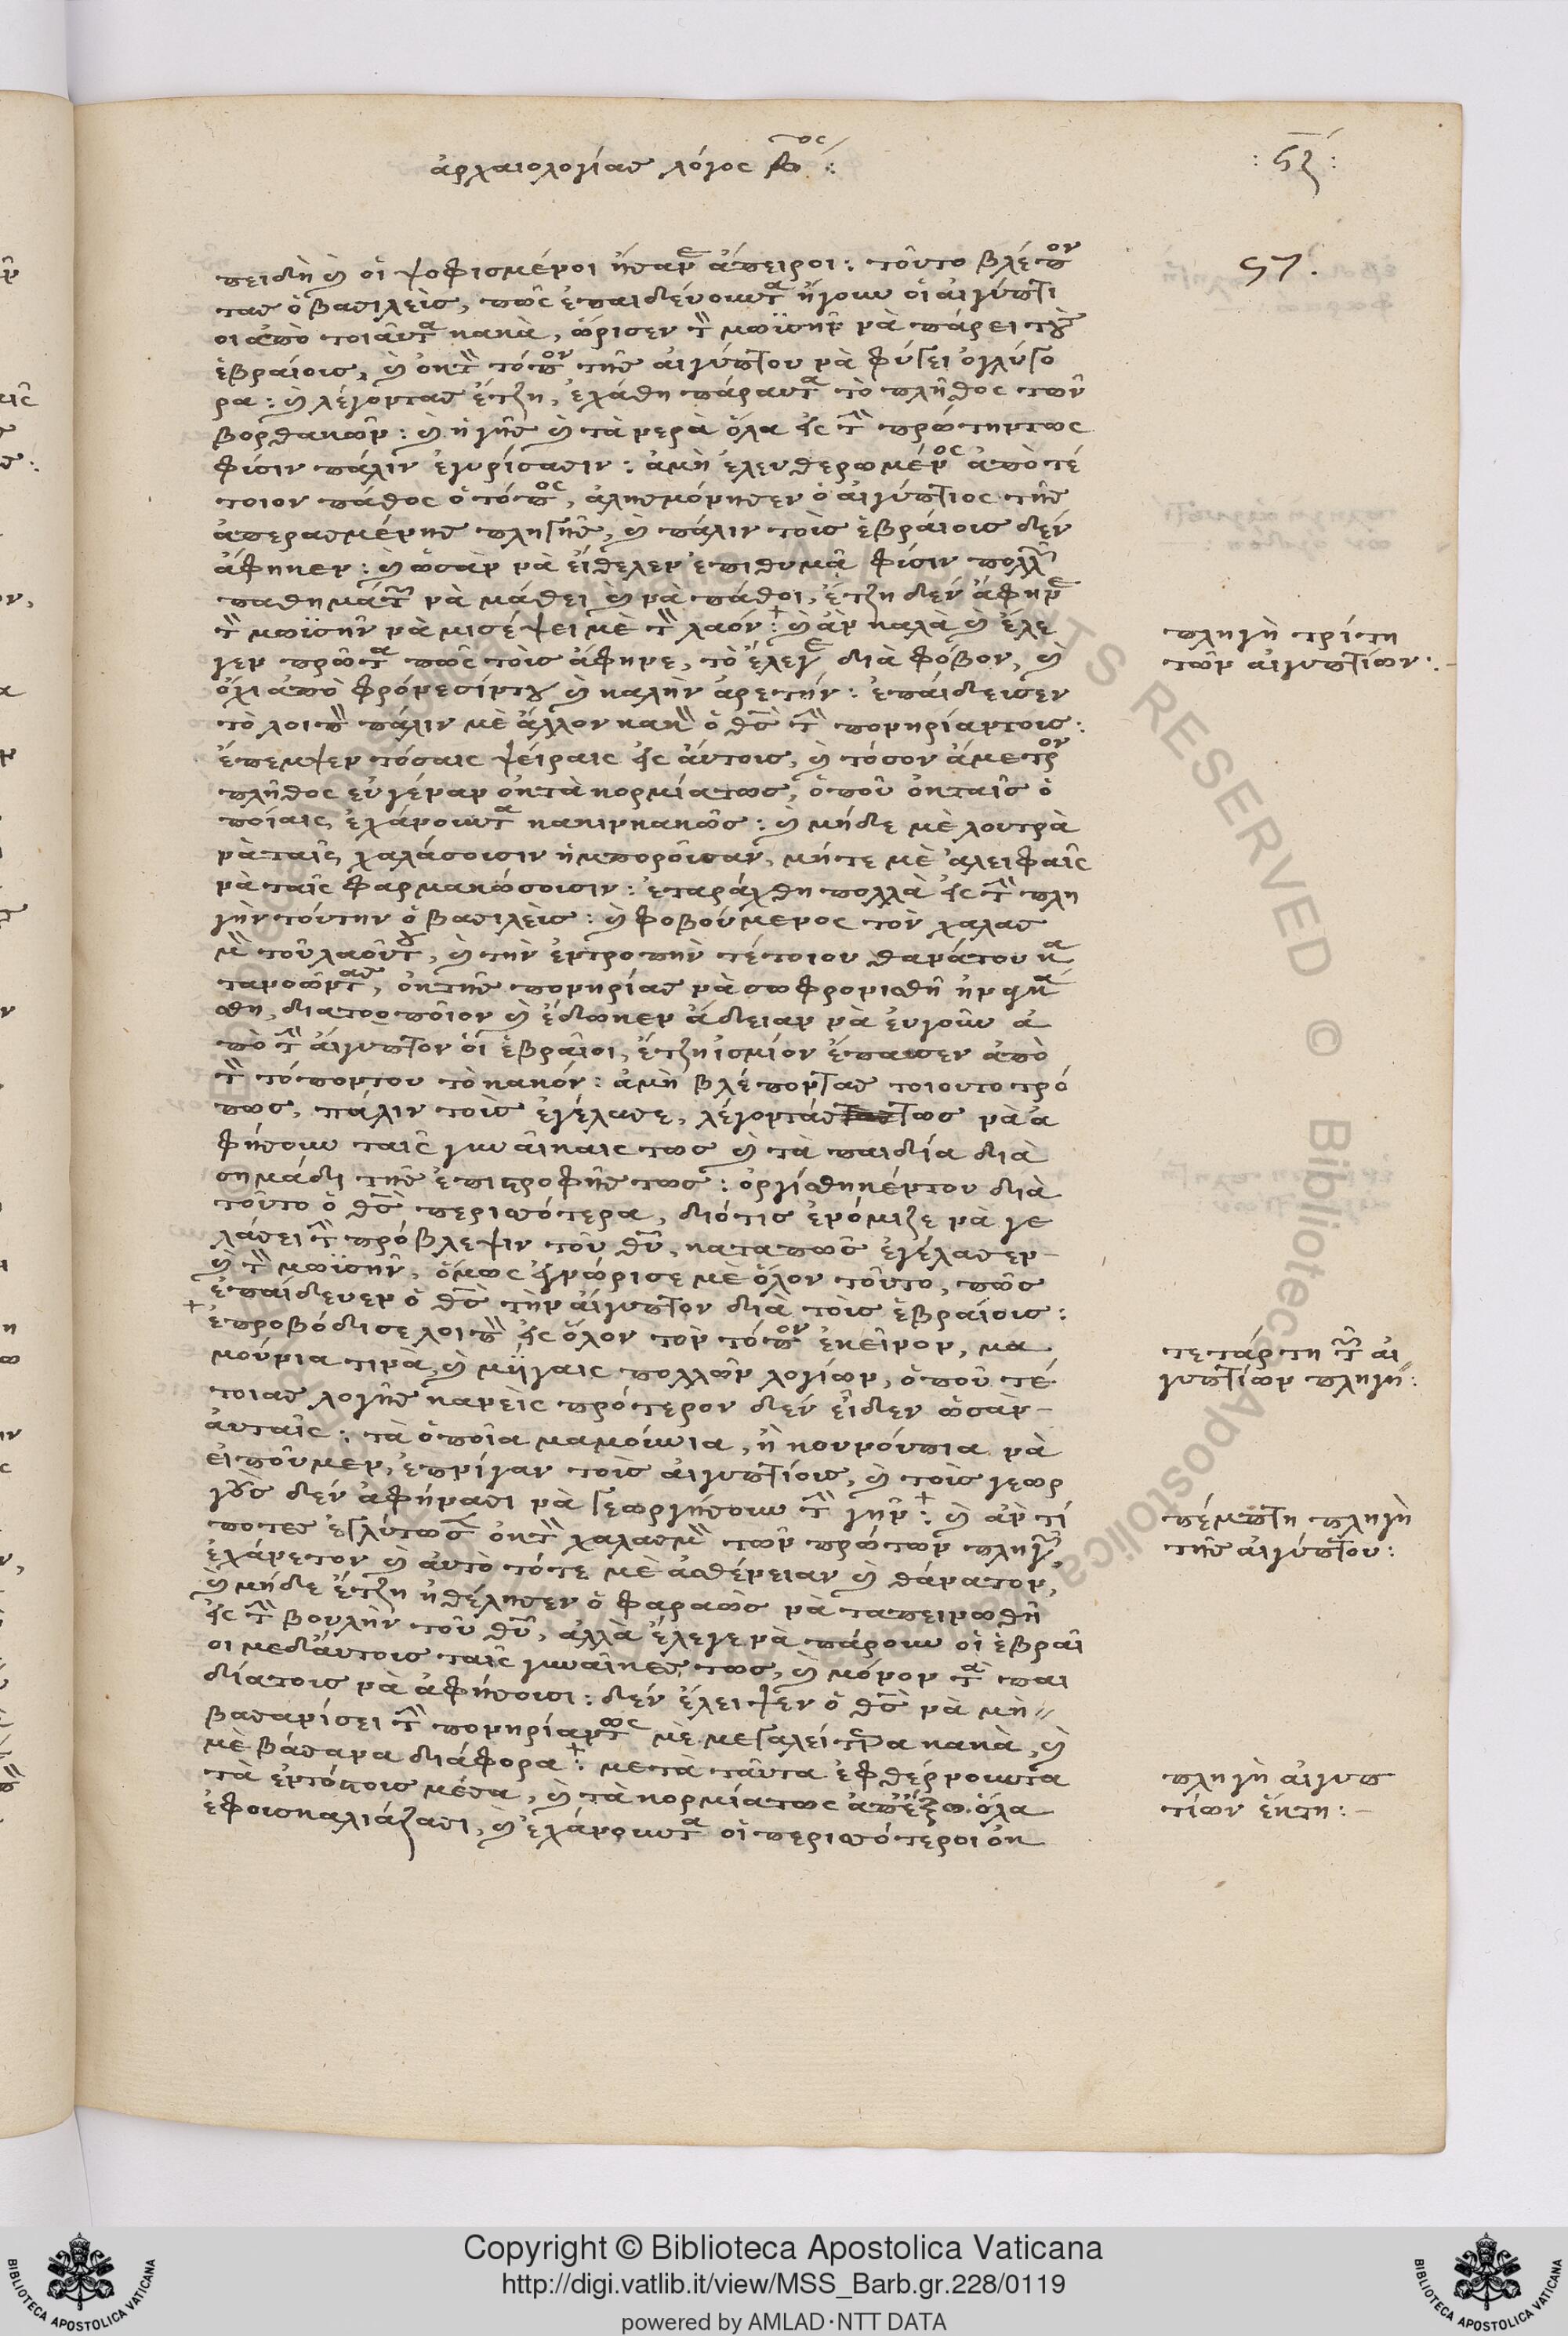 ἀρχαιολογίας λόγος β^ος :
: ϛζ :
97.
πειδὴ καὶ οἱ ψοφισμένοι ἦσαν ἄπειροι : τοῦτο βλέπον
τας ὁ βασιλεὺς, πῶς ἐπαιδεύουντα ἤγουν οἱ αἰγύπτι
οι ἀπὸ τοιαῦτα κακὰ, ὥρισεν τὸν μωϋσῆν νὰ πάρει τοὺς
ἑβραίους, καὶ ὀκ τὸν τόπον τῆς αἰγύπτου νὰ φύγει ὀγλύγο
ρα : καὶ λέγοντας ἔτζη, ἐχάθη πάραυτα τὸ πλῆθος τῶν
βορθακῶν : καὶ ἡ γῆς καὶ τὰ νερὰ ὅλα εἰς τὴν πρώτηντως
φύσιν πάλιν ἐγυρίσασιν : ἀμὴ ἐλευθερωμένος ἀπὸ τέ
τοιον πάθος ὁ τόπος, ἀλησμόνησεν ὁ αἰγύπτιος τῆς
ἀπερασμένης πληγῆς, καὶ πάλιν τοὺς ἑβραίους δὲν
ἄφηκεν : καὶ ὡσὰν νὰ εἴθελεν ἐπιθυμᾶ φύσιν πολλῶν
παθημάτων νὰ μάθει καὶ νὰ πάθοι, ἔτζη δὲν ἄφηνε
τὸν μωϋσῆν νὰ μισέψει μὲ τὸν λαόν + : καὶ ἂν καλὰ καὶ ἔλε
γεν πρῶτα πῶς τοὺς ἄφηνε, τὸ ἔλεγε διὰ φόβον, καὶ
ὄχι ἀπὸ φρόνεσίντου καὶ καλὴν ἀρετήν : ἐπαίδευσεν
τὸ λοιπὸν πάλιν μὲ ἄλλον κακὸν ὁ θεὸς τὴν πονηρίαντους :
ἔπεμψεν τόσαις ψείραις εἰς αὐτοὺς, καὶ τόσον ἄμετρον
πλῆθος εὐγέναν ὀκ τὰ κορμίατως, ὁποῦ ὀκ ταῖς ὁ
ποίαις ἐχάνουντα κακινκακῶς : καὶ μήδε μὲ λουτρὰ
νὰ ταῖς χαλάσουσιν ἠμποροῦσαν, μήτε μὲ ἀλειφαῖς
νὰ ταῖς φαρμακώσουσιν : ἐταράχθη πολλὰ εἰς τὴν πλη
γὴν τούτην ὁ βασιλεὺς : καὶ φοβούμενος τὸν χαλασ
μὸν τοῦ λαοῦντου, καὶ τὴν ἐντροπὴν τέτοιου θανάτου κα
τανοῶντας, ὀκ τῆς πονηρίας νὰ σωφρονισθῆ ἠναγκά
σθη, διατοοποῖον καὶ ἔδωκεν ἄδειαν νὰ εὐγοῦν ἀ
πὸ τὴν αἴγυπτον οἱ ἑβραῖοι, ἔτζη ἰσμίον ἔπαυσεν ἀπὸ
τὸν τόποντου τὸ κακόν : ἀμὴ βλέποντας τοιουτοτρό
πως, πάλιν τοὺς ἐγέλασε, λέγοντάςτως νὰ ἀ
φήσουν ταῖς γυναῖκαις τως καὶ τὰ παιδία διὰ
σημάδι τῆς ἐπιστροφῆς τως : ὀργίσθηκέντου διὰ
τοῦτο ὁ θεὸς περισσότερα, διότις ἐνόμιζε νὰ γε
λάσει τὴν πρόβλεψιν τοῦ θεοῦ, καταπῶς ἐγέλασεν -
καὶ τὸν μωϋσῆν, ὅμως ἐγνώρισε μὲ ὅλον τοῦτο, πῶς
ἐπαίδευεν ὁ θεὸς τὴν αἴγυπτον διὰ τοὺς ἑβραίους :
+ ἐπροβόδισε λοιπὸν εἰς ὅλον τὸν τόπον ἐκεῖνον, μα
μούνια τινὰ, καὶ μύγαις πολλῶν λογίων, ὁποῦ τέ
τοιας λογῆς κανεὶς πρότερον δὲν εἶδεν ὡσὰν -
αὐταῖς : τὰ ὁποῖα μαμούνια, ἢ κουνούπια νὰ
εἰποῦμεν, ἐπνίγαν τοὺς αἰγυπτίους, καὶ τοὺς γεωρ
γοὺς δὲν ἀφήνασι νὰ γεωργήσουν τὴν γῆν + : καὶ ἄν τί
ποτες ἐγλύτωσε ὀκ τὸν χαλασμὸν τῶν πρώτων πληγῶν,
ἐχάνετον καὶ αὐτὸ τότε μὲ ἀσθένειαν καὶ θάνατον,
καὶ μήδε ἔτζη ἠθέλησεν ὁ φαραὼς νὰ ταπεινωθῆ
εἰς τὴν βουλὴν τοῦ θεοῦ, ἀλλὰ ἔλεγε νὰ πάρουν οἱ ἑβραῖ
οι μεδαύτους ταῖς γυναῖκες τως, καὶ μόνον τὰ παι
δίατους νὰ ἀφήσουσι : δὲν ἔλειψεν ὁ θεὸς νὰ μὴ
βασανίσει τὴν πονηρίαντως μὲ μεγαλείτερα κακὰ, καὶ
μὲ βάσανα διάφορα + : μετὰ ταῦτα ἐφθέρνουντα
τὰ ἐντόςτους μέσα, καὶ τὰ κορμίατως ἀπέξω ὅλα
ἐφουσκαλιάζασι, καὶ ἐχάνουντα οἱ περισσότεροι ὀκ
πληγὴ τρίτη
τῶν αἰγυπτίων :-
τετάρτη τῶν αἰ
γυπτίων πληγή :
πέμπτη πληγὴ
τῆς αἰγύπτου :
πληγὴ αἰγυπ
τίων ἕκτη : -
Copyright © Biblioteca Apostolica Vaticana
http://digi.vatlib.it/view/MSS_Barb.gr.228/0119
powered by AMLAD·NTT DATA